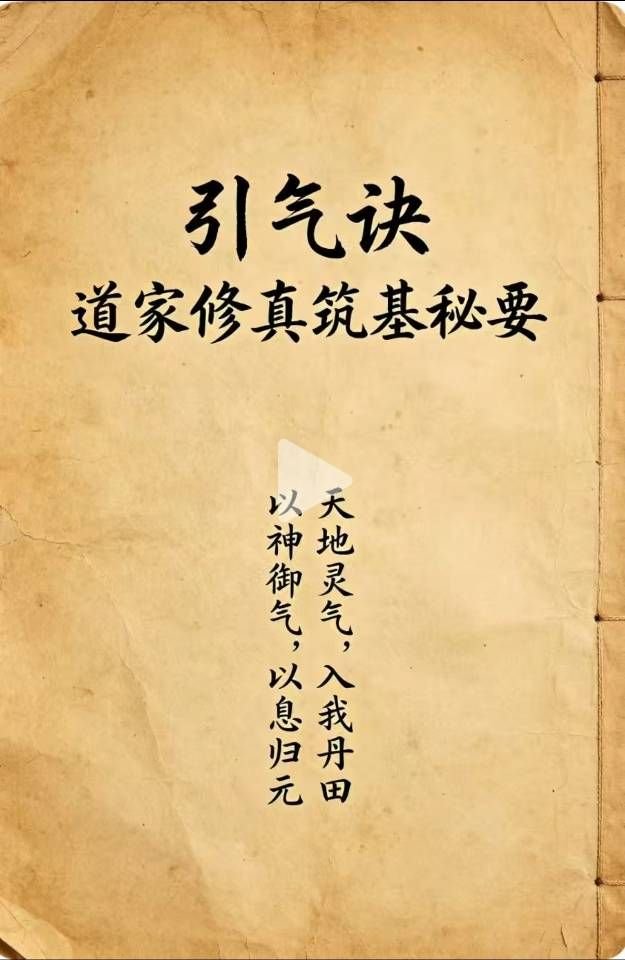 引气诀
道家修真筑基秘要
天地灵气，入我丹田
以神御气，以息归元